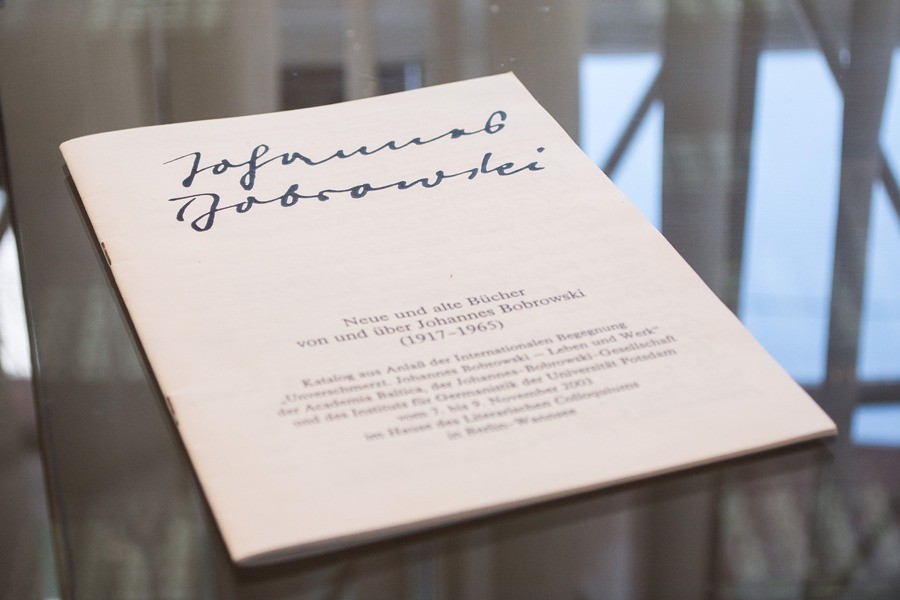 Johannes
Bobrowski
Neue und alte Bücher
von und über Johannes Bobrowski
(1917–1965)
Katalog aus Anlaß der Internationalen Begegnung
„Unverschmerzt. Johannes Bobrowski — Leben und Werk“
der Academia Baltica, der Johannes-Bobrowski-Gesellschaft
und des Instituts für Germanistik der Universität Potsdam
vom 7. bis 9. November 2003
im Hause des Literarischen Colloquiums
in Berlin-Wannsee